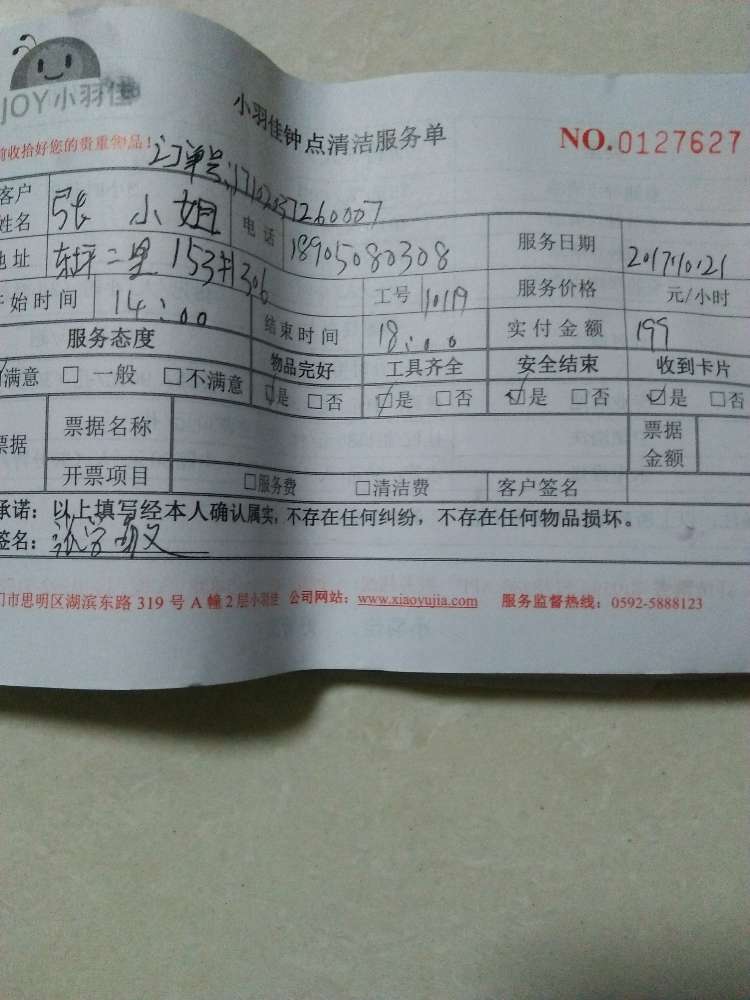 JOY小羽佳
小羽佳钟点清洁服务单
NO.0127627
前收拾好您的贵重物品!
订单号:
客户姓名 张小姐 电话 18905080308 服务日期 2017.10.21
地址 东坪二里153#306 工号 10119 服务价格 元/小时
开始时间 14:00 结束时间 18:00 实付金额 199
服务态度 物品完好 工具齐全 安全结束 收到卡片
满意 □ 一般 □不满意 ☑是 □否 ☑是 □否 ☑是 □否 ☑是 □否
票据 票据名称 票据金额
开票项目 □服务费 □清洁费 客户签名
承诺:以上填写经本人确认属实,不存在任何纠纷,不存在任何物品损坏。
签名:
门市思明区湖滨东路 319 号 A 幢 2 层小羽佳 公司网站:www.xiaoyujia.com 服务监督热线:0592-5888123